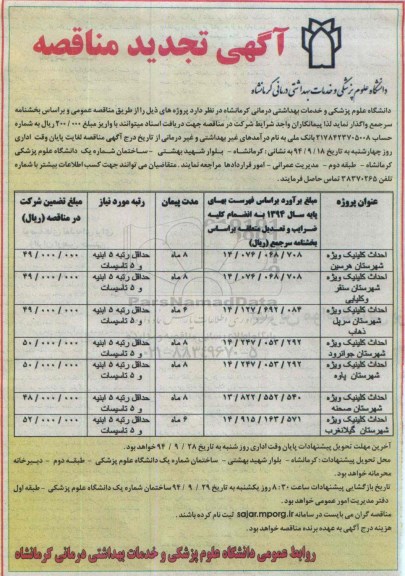 آگهی تجدید مناقصه
دانشگاه علوم پزشکی و خدمات بهداشتی درمانی کرمانشاه
دانشگاه علوم پزشکی و خدمات بهداشتی درمانی کرمانشاه در نظر دارد پروژه های ذیل را از طریق مناقصه عمومی و براساس بخشنامه
سرجمع واگذار نماید لذا پیمانکاران واجد شرایط شرکت در مناقصه جهت دریافت اسناد میتوانند با واریز مبلغ ۲۰۰/۰۰۰ ریال به شماره
حساب ۲۱۷۸۲۲۳۷۰۵۰۰۸ بانک ملی به نام درآمدهای غیر بهداشتی و غیر درمانی از تاریخ درج آگهی مناقصه لغایت پایان وقت اداری
روز چهارشنبه به تاریخ ۹۴/۹/۱۸ به نشانی : کرمانشاه - بلوار شهید بهشتی - ساختمان شماره یک دانشگاه علوم پزشکی
کرمانشاه - طبقه دوم - مدیریت عمرانی - امور قراردادها مراجعه نمایند. متقاضیان می توانند جهت کسب اطلاعات بیشتر با شماره
تلفن ۳۸۳۷۰۲۶۵ تماس حاصل فرمایند.
عنوان پروژه | مبلغ برآورد براساس فهرست بهای پایه سال ۱۳۹۴ به انضمام کلیه ضرایب و تعدیل متعلقه براساس بخشنامه سرجمع (ریال) | مدت پیمان | رتبه مورد نیاز | مبلغ تضمین شرکت در مناقصه (ریال)
احداث کلینیک ویژه شهرستان هرسین | ۱۴/۰۷۴/۰۴۸/۷۰۸ | ۸ ماه | حداقل رتبه ۵ ابنیه و ۵ تاسیسات | ۴۹/۰۰۰/۰۰۰
احداث کلینیک ویژه شهرستان سنقر وکلیایی | ۱۴/۰۷۴/۰۴۸/۷۰۸ | ۸ ماه | حداقل رتبه ۵ ابنیه و ۵ تاسیسات | ۴۹/۰۰۰/۰۰۰
احداث کلینیک ویژه شهرستان سرپل ذهاب | ۱۴/۱۲۷/۴۹۲/۰۸۴ | ۶ ماه | حداقل رتبه ۵ ابنیه و ۵ تاسیسات | ۴۹/۰۰۰/۰۰۰
احداث کلینیک ویژه شهرستان جوانرود | ۱۴/۲۴۷/۰۵۳/۲۹۲ | ۸ ماه | حداقل رتبه ۵ ابنیه و ۵ تاسیسات | ۵۰/۰۰۰/۰۰۰
احداث کلینیک ویژه شهرستان پاوه | ۱۴/۲۴۷/۰۵۳/۲۹۲ | ۸ ماه | حداقل رتبه ۵ ابنیه و ۵ تاسیسات | ۵۰/۰۰۰/۰۰۰
احداث کلینیک ویژه شهرستان صحنه | ۱۳/۸۲۲/۵۵۳/۵۴۰ | ۸ ماه | حداقل رتبه ۵ ابنیه و ۵ تاسیسات | ۴۸/۰۰۰/۰۰۰
احداث کلینیک ویژه شهرستان گیلانغرب | ۱۴/۹۱۵/۱۶۳/۵۷۱ | ۶ ماه | حداقل رتبه ۵ ابنیه و ۵ تاسیسات | ۵۲/۰۰۰/۰۰۰
ParsNamadData
۰۲۱-۸۸۳۴۹۶۷۰-۵
آخرین مهلت تحویل پیشنهادات پایان وقت اداری روز شنبه به تاریخ ۹۴/۹/۲۸ خواهد بود.
محل تحویل پیشنهادات : کرمانشاه - بلوار شهید بهشتی - ساختمان شماره یک دانشگاه علوم پزشکی - طبقه دوم - دبیرخانه
محرمانه خواهد بود.
تاریخ بازگشایی پیشنهادات ساعت ۸:۳۰ روز یکشنبه به تاریخ ۹۴/۹/۲۹ ساختمان شماره یک دانشگاه علوم پزشکی - طبقه اول
دفتر مدیریت امور عمومی خواهد بود.
مناقصه گران می بایست در سامانه sajar.mporg.ir ثبت نام کرده باشند.
هزینه درج آگهی به عهده برنده مناقصه خواهد بود.
روابط عمومی دانشگاه علوم پزشکی و خدمات بهداشتی درمانی کرمانشاه